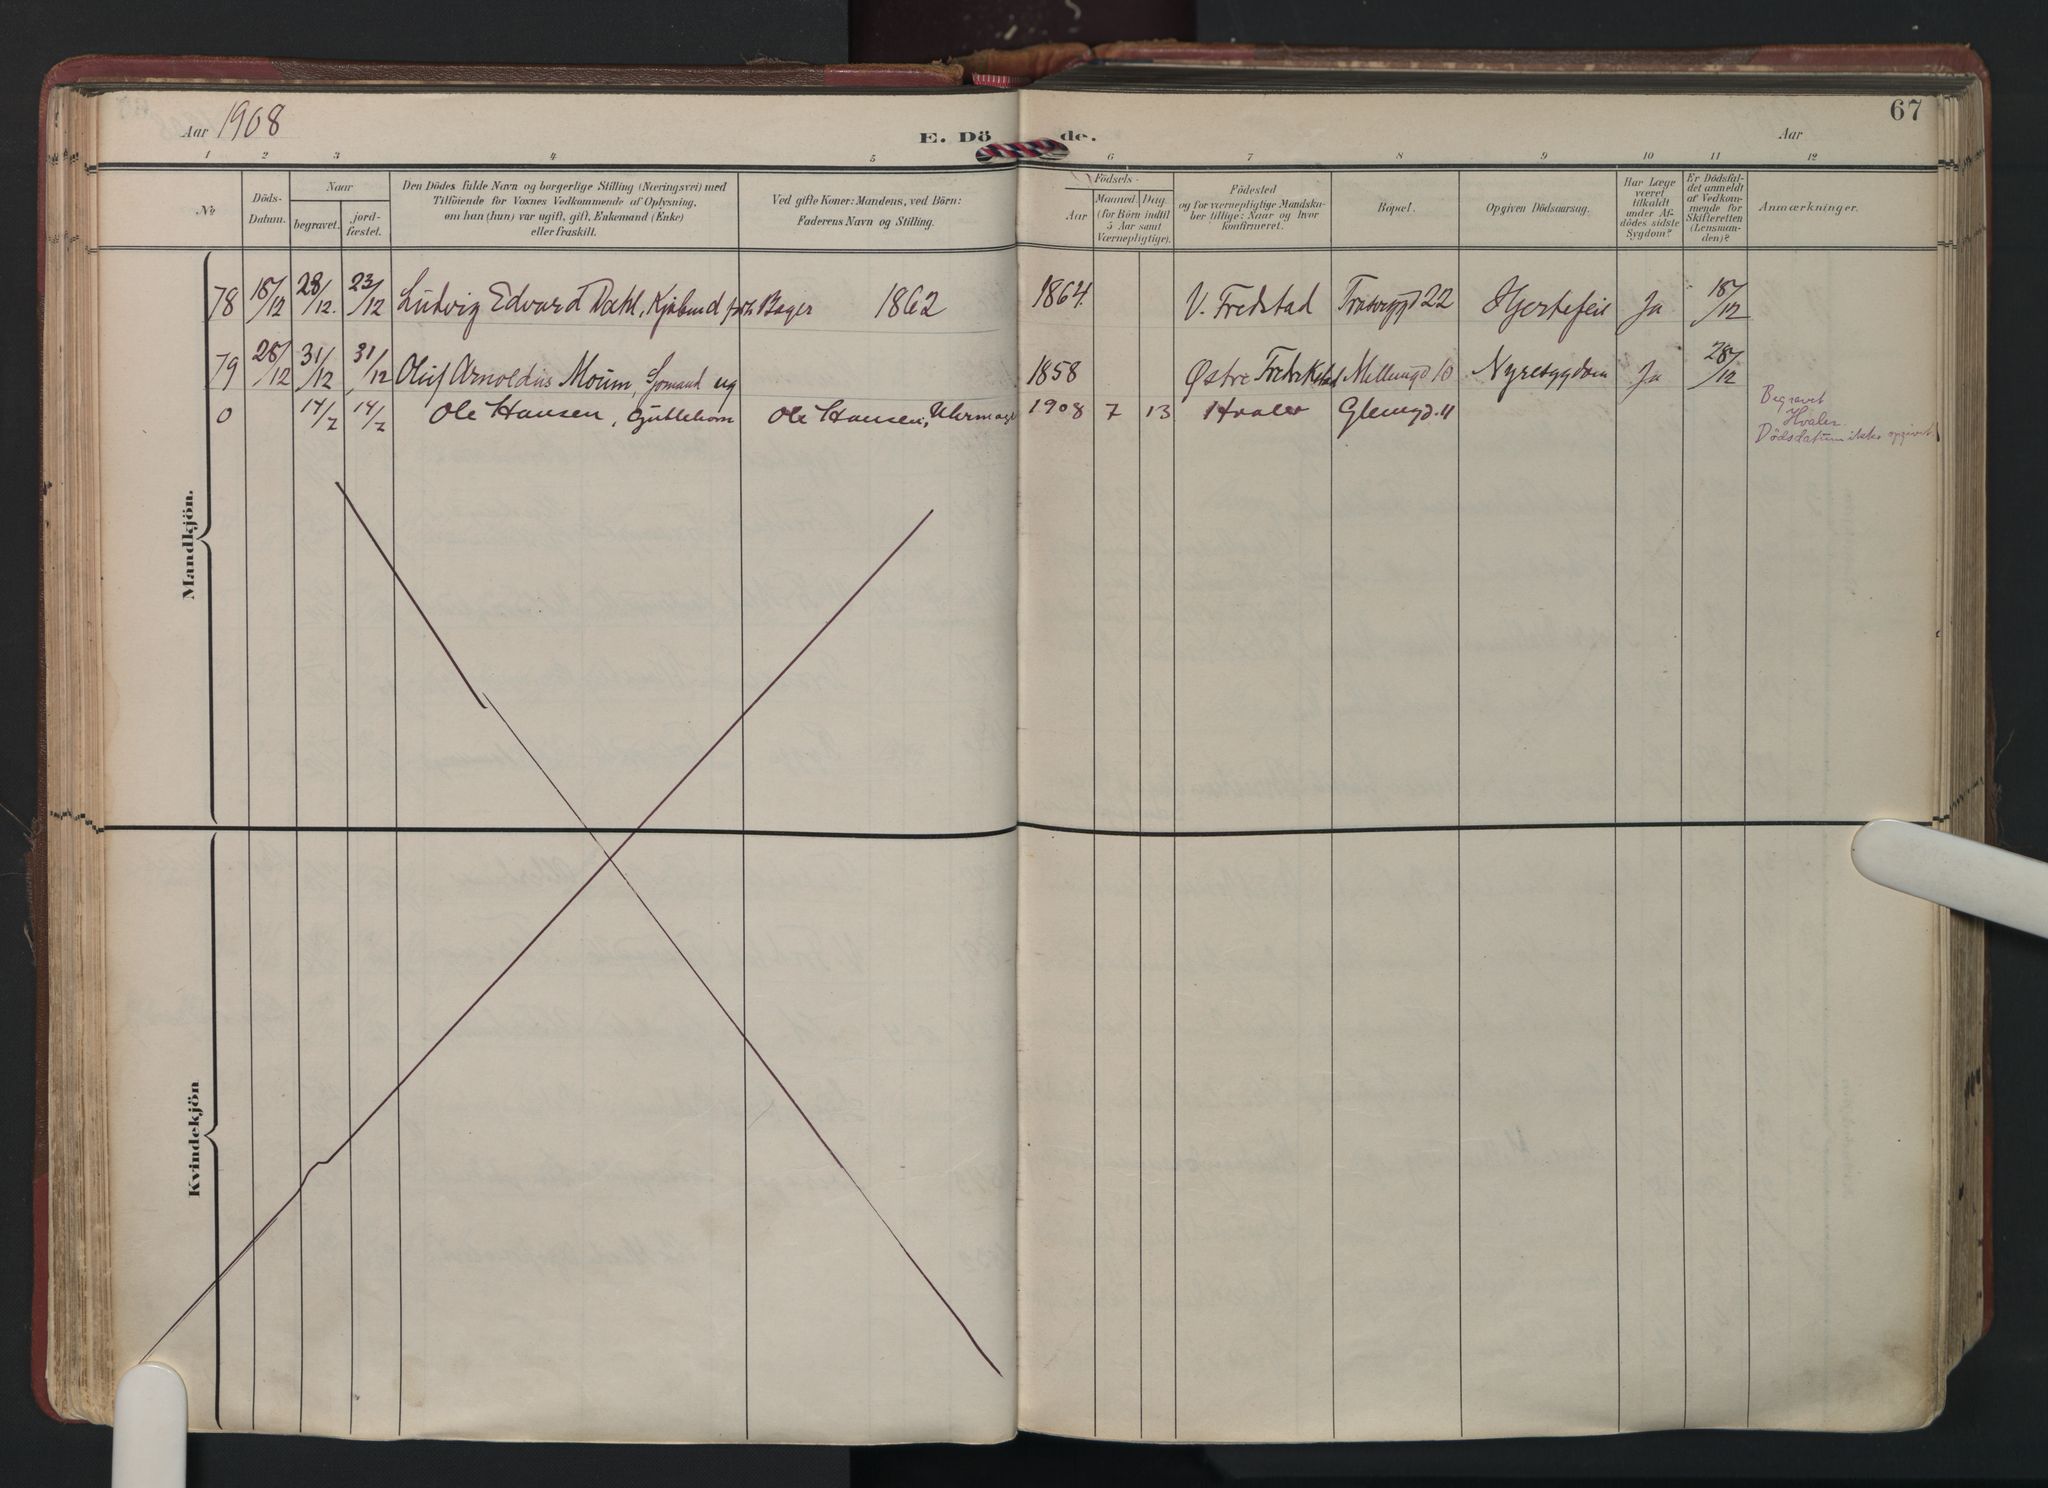 Aar 1908
E. Dö de.
Aar
67
1 2 3 4 5 6 7 8 9 10 11 12
No
Döds-
Datum.
Naar
begravet.
jord-
fæstet.
Den Dödes fulde Navn og borgerlige Stilling (Næringsvei) med
Tilföiende for Voxnes Vedkommende af Oplysning,
om han (hun) var ugift, gift, Enkemand (Enke)
eller fraskilt.
Ved gifte Koner: Mandens, ved Börn:
Faderens Navn og Stilling.
Födsels-
Aar
Maaned Dag
(for Börn indtil
5 Aar samt
Værnepligtige).
Födested
og for værnepligtige Mandska-
ber tillige: Naar og hvor
konfirmeret.
Bopæl.
Opgiven Dödsaarsag.
Har Læge
været
tilkaldt
under Af-
dödes sidste
Sygdom?
Er Dödsfal-
det anmeldt
af Vedkom-
mende for
Skifteretten
(Lensman-
den)?
Anmærkninger.
Mandkjön.
78 18/12 28/12. 23/12 Ludvig Edvard Dahl, Bager 1862 1864. V. Fredstad 22 Hjertefeil Ja 18/12
79 28/12 31/12 31/12 Oluf Arnoldus Moum, Sömand ug 1858 Østre Fredrikstad Mellumgd 10 Nyresygdom Ja 28/12
0 14/7 14/7 Ole Hansen, Guttebarn Ole Hansen, Uhrmager 1908 7 13 Hvaler Glemgd. 11
Begravet
Hvaler.
Dödsdatum ikke opgivet.
Kvindekjön